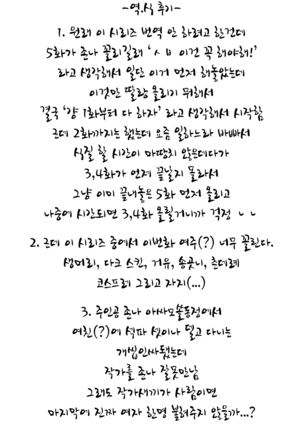 -역.식 후기-
1. 원래 이 시리즈 번역 안 하려고 한건데
5화가 존나 꼴리길래 'ㅅㅂ 이건 꼭 해야해!'
라고 생각해서 일단 이거 먼저 해놓았는데
이것만 딸랑 올리기 뭐해서
결국 '걍 1화부터 다 하자' 라고 생각해서 시작함
근데 2화까지는 했는데 요즘 일하느라 바빠서
식질 할 시간이 마땅히 않은데다가
3,4화가 언제 끝날지 몰라서
그냥 이미 끝내놓은 5화 먼저 올리고
나중에 시간되면 3,4화 올릴거니까 걱정 ㄴㄴ
2. 근데 이 시리즈 중에서 이번화 여주(?) 너무 꼴린다.
생머리, 다크 스킨, 거유, 송곳니, 츤데레
코스프레 그리고 자지(...)
3. 주인공 존나 아싸모쏠동정에서
여친(?)에 섹파 셋이나 덜고 다니는
개씹인싸됐는데
작가를 존나 잘못만남
그래도 작가새끼가 사람이면
마지막에 진짜 여자 한명 붙여주지 않을까...?